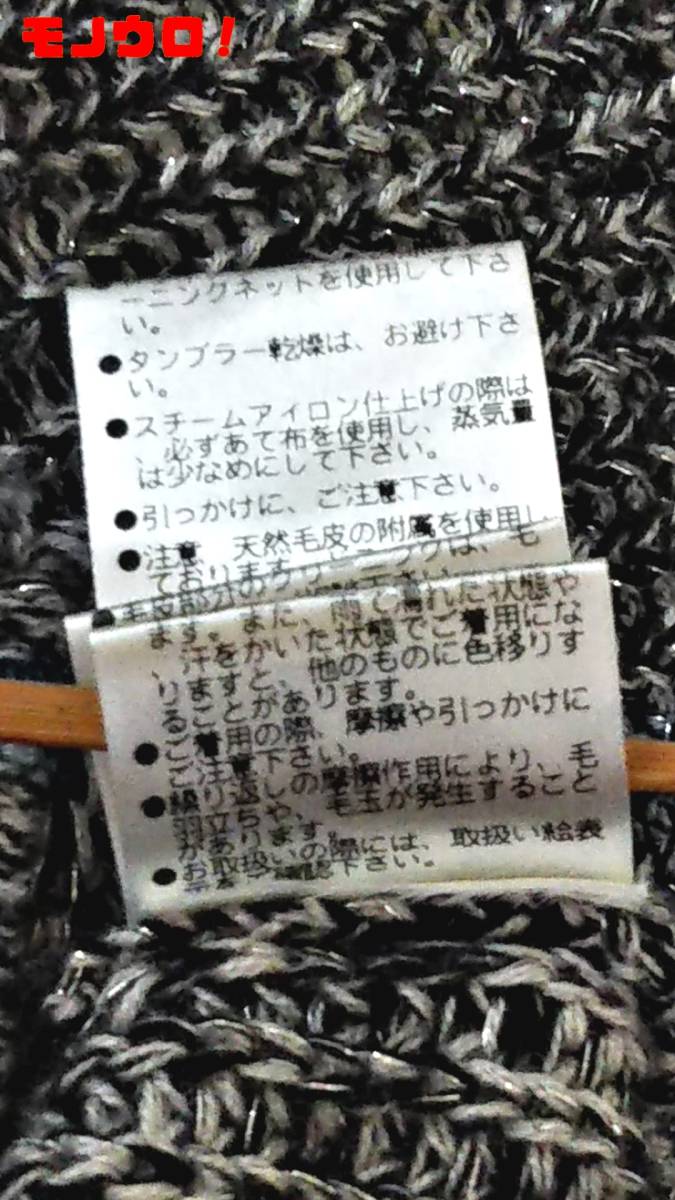 モノウロ！
ーニングネットを使用して下さ
い。
●タンブラー乾燥は、お避け下さ
い。
●スチームアイロン仕上げの際は
、必ずあて布を使用し、蒸気量
は少なめにして下さい。
●引っかけに、ご注意下さい。
●注意 天然毛皮の附属を使用し
ております
毛皮部分のクリーニングは、毛
す。また、雨で濡れた状態や
、汗をかいた状態でご着用にな
りますと、他のものに色移りす
ることがあります。
●ご着用の際、摩擦や引っかけに
ご注意下さい。
●繰り返しの摩擦作用により、毛
羽立ちや、毛玉が発生すること
があります。
●お取扱いの際には、取扱い絵表
示をご確認下さい。